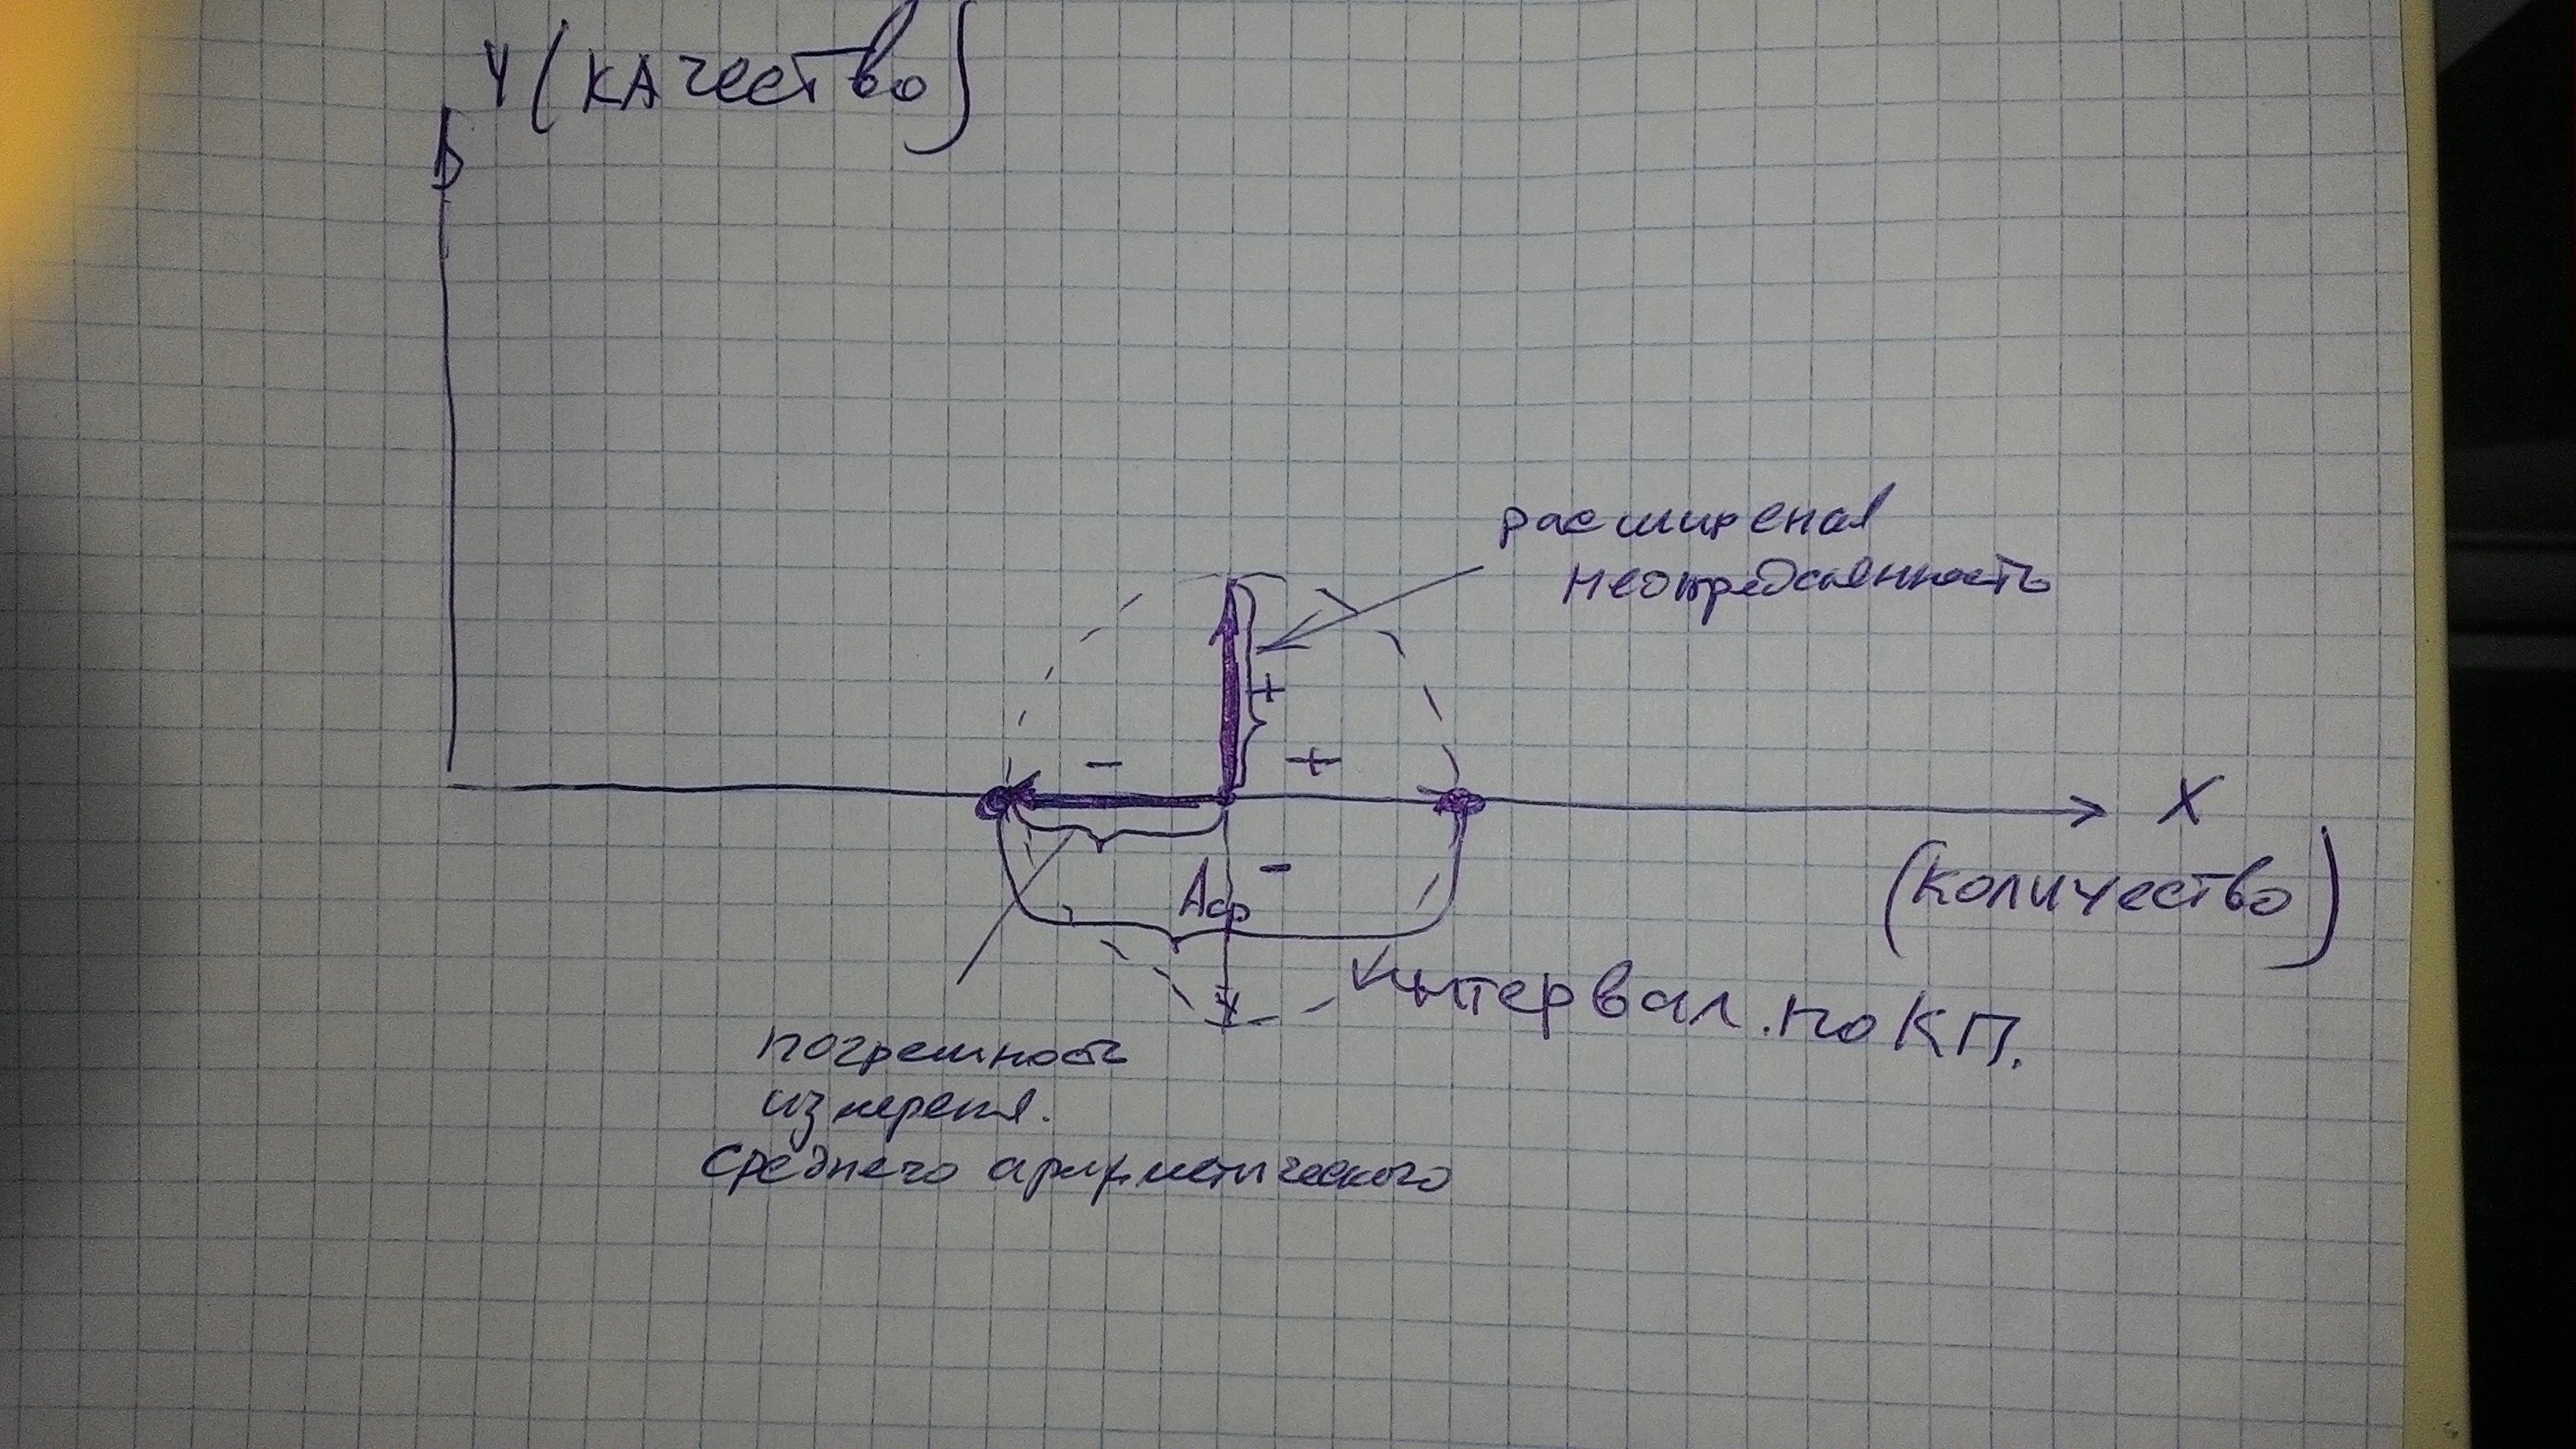 Y (качество)
расширеная
неопределенность
- + +
X
Аср -
(количество)
Интервал по КП.
погрешность
измерения.
среднего арифметического